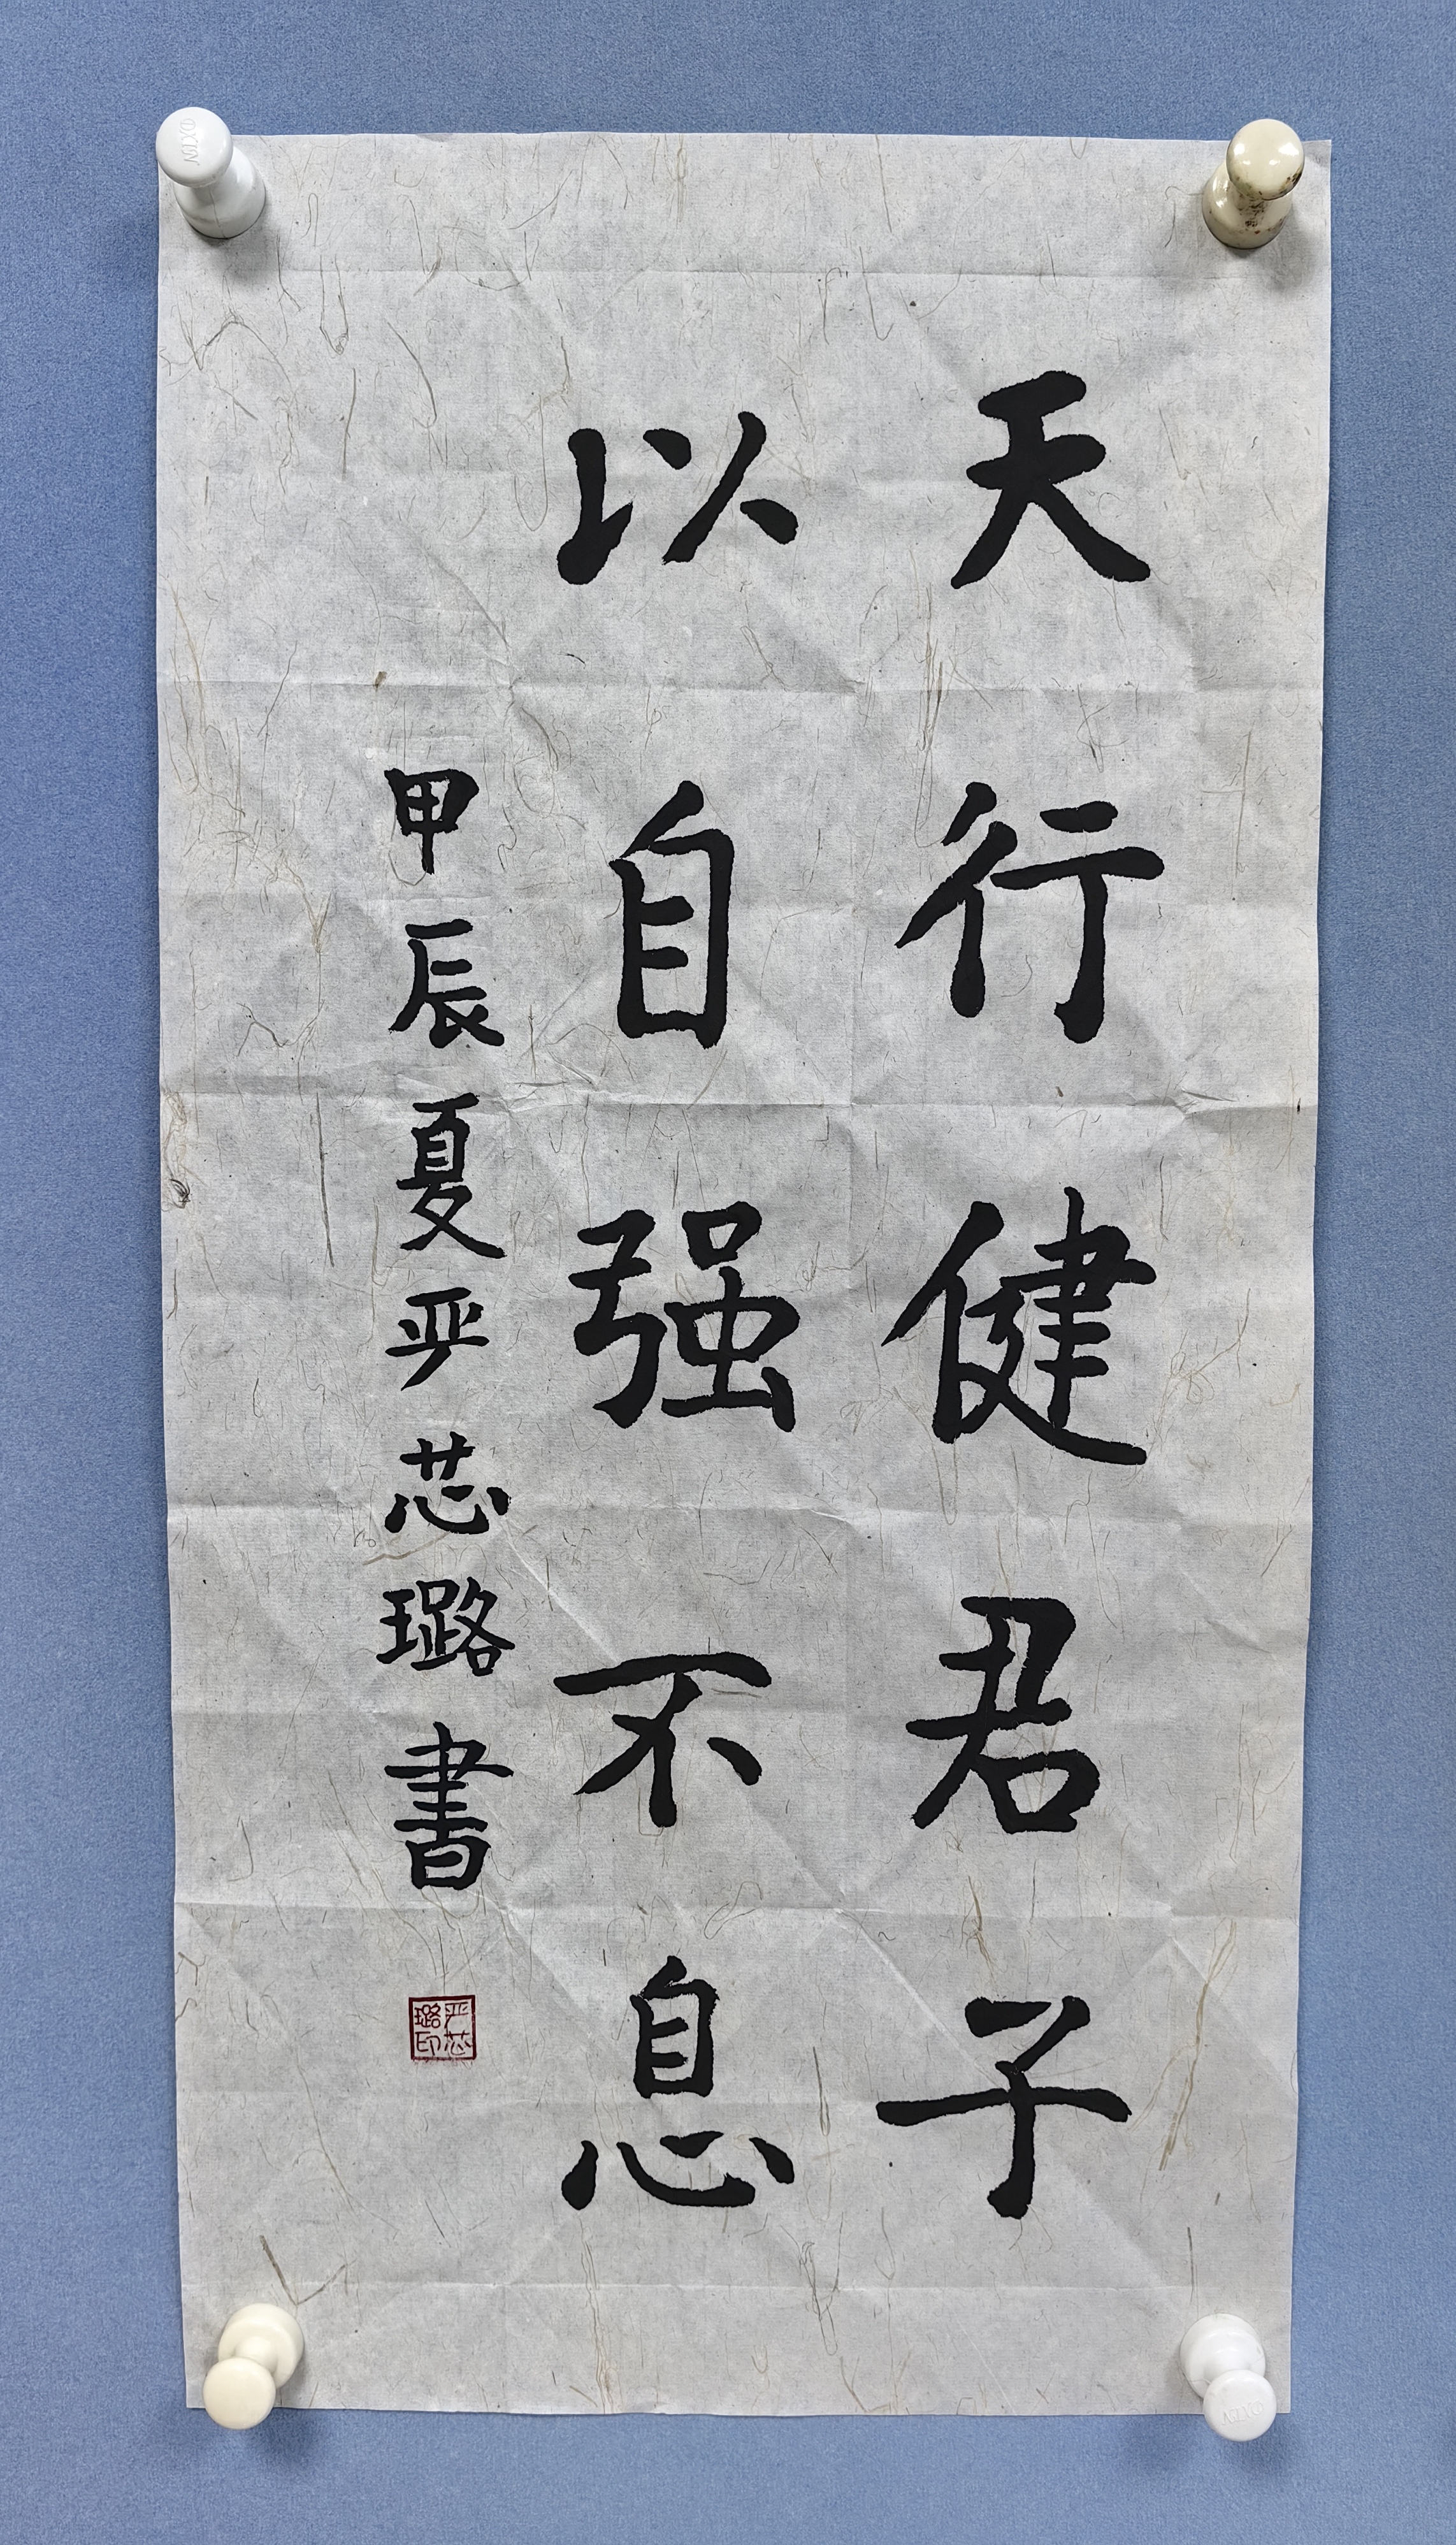 天行健君子
以自强不息
甲辰夏严芯璐書
严芯璐印